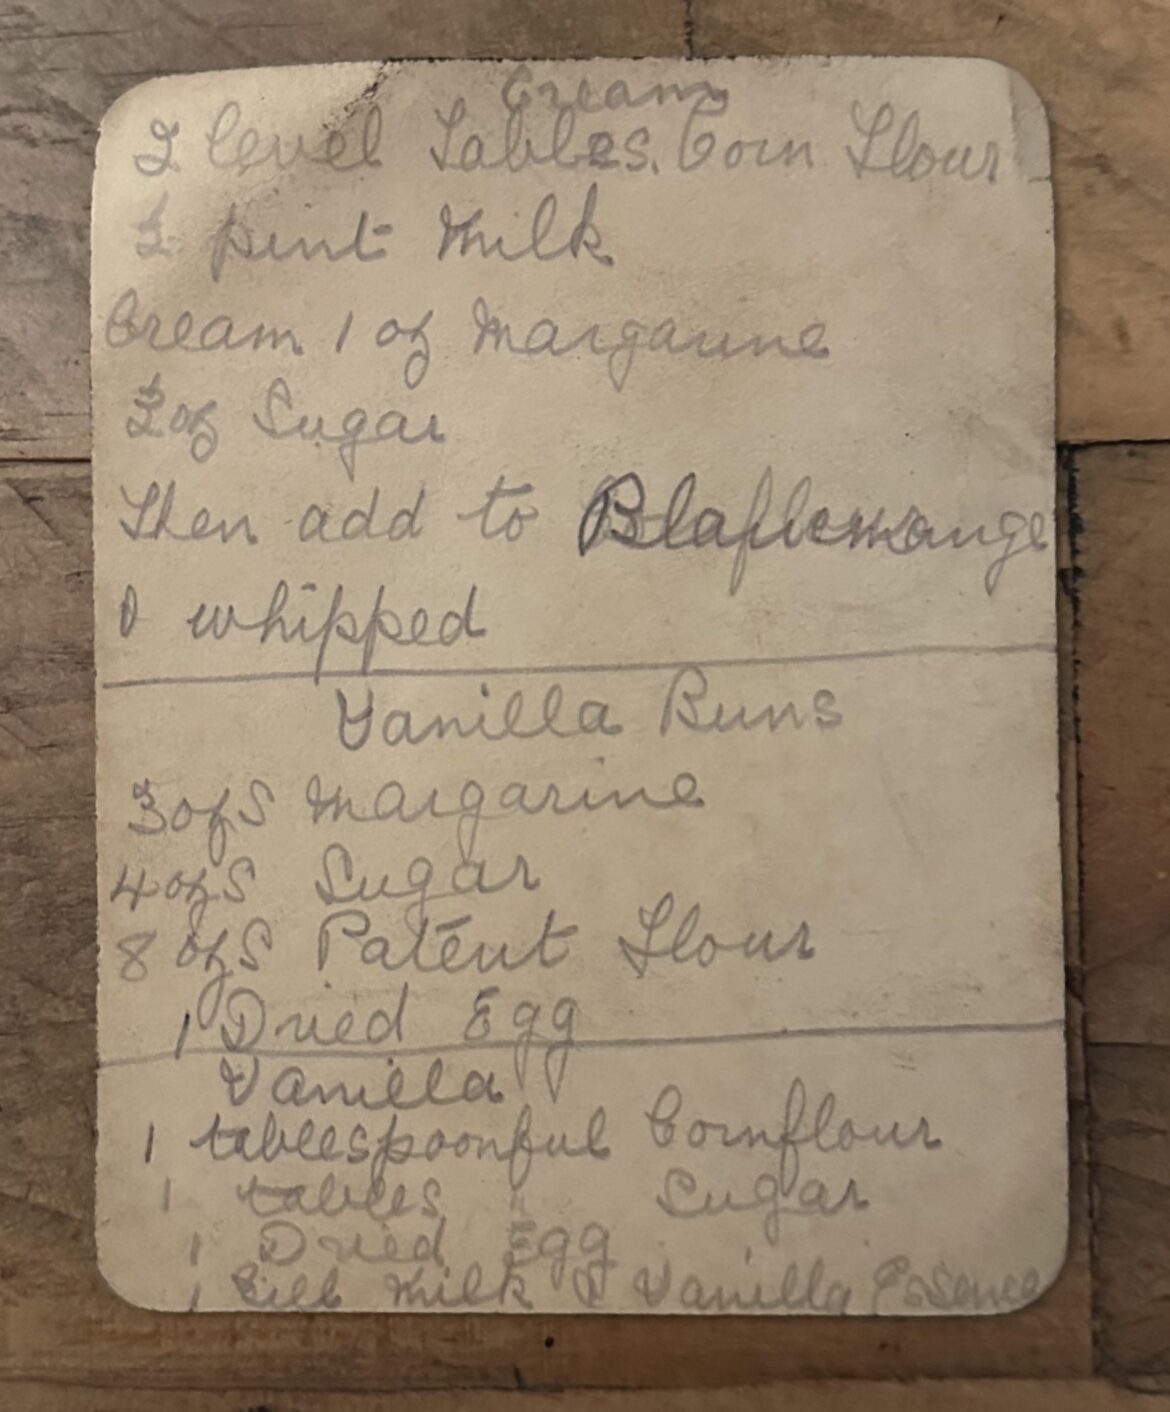 Cream
2 level Tables. Corn Flour
½ pint Milk
Cream 1 oz Margarine
oz Sugar
Then add to
& whipped
Vanilla Buns
3 ozs Margarine
4 ozs Sugar
8 ozs Patent Flour
1 Dried Egg
Vanilla
1 tablespoonful Cornflour
1 tables Sugar
1 Dried Egg
1 Gill Milk & Vanilla Essence